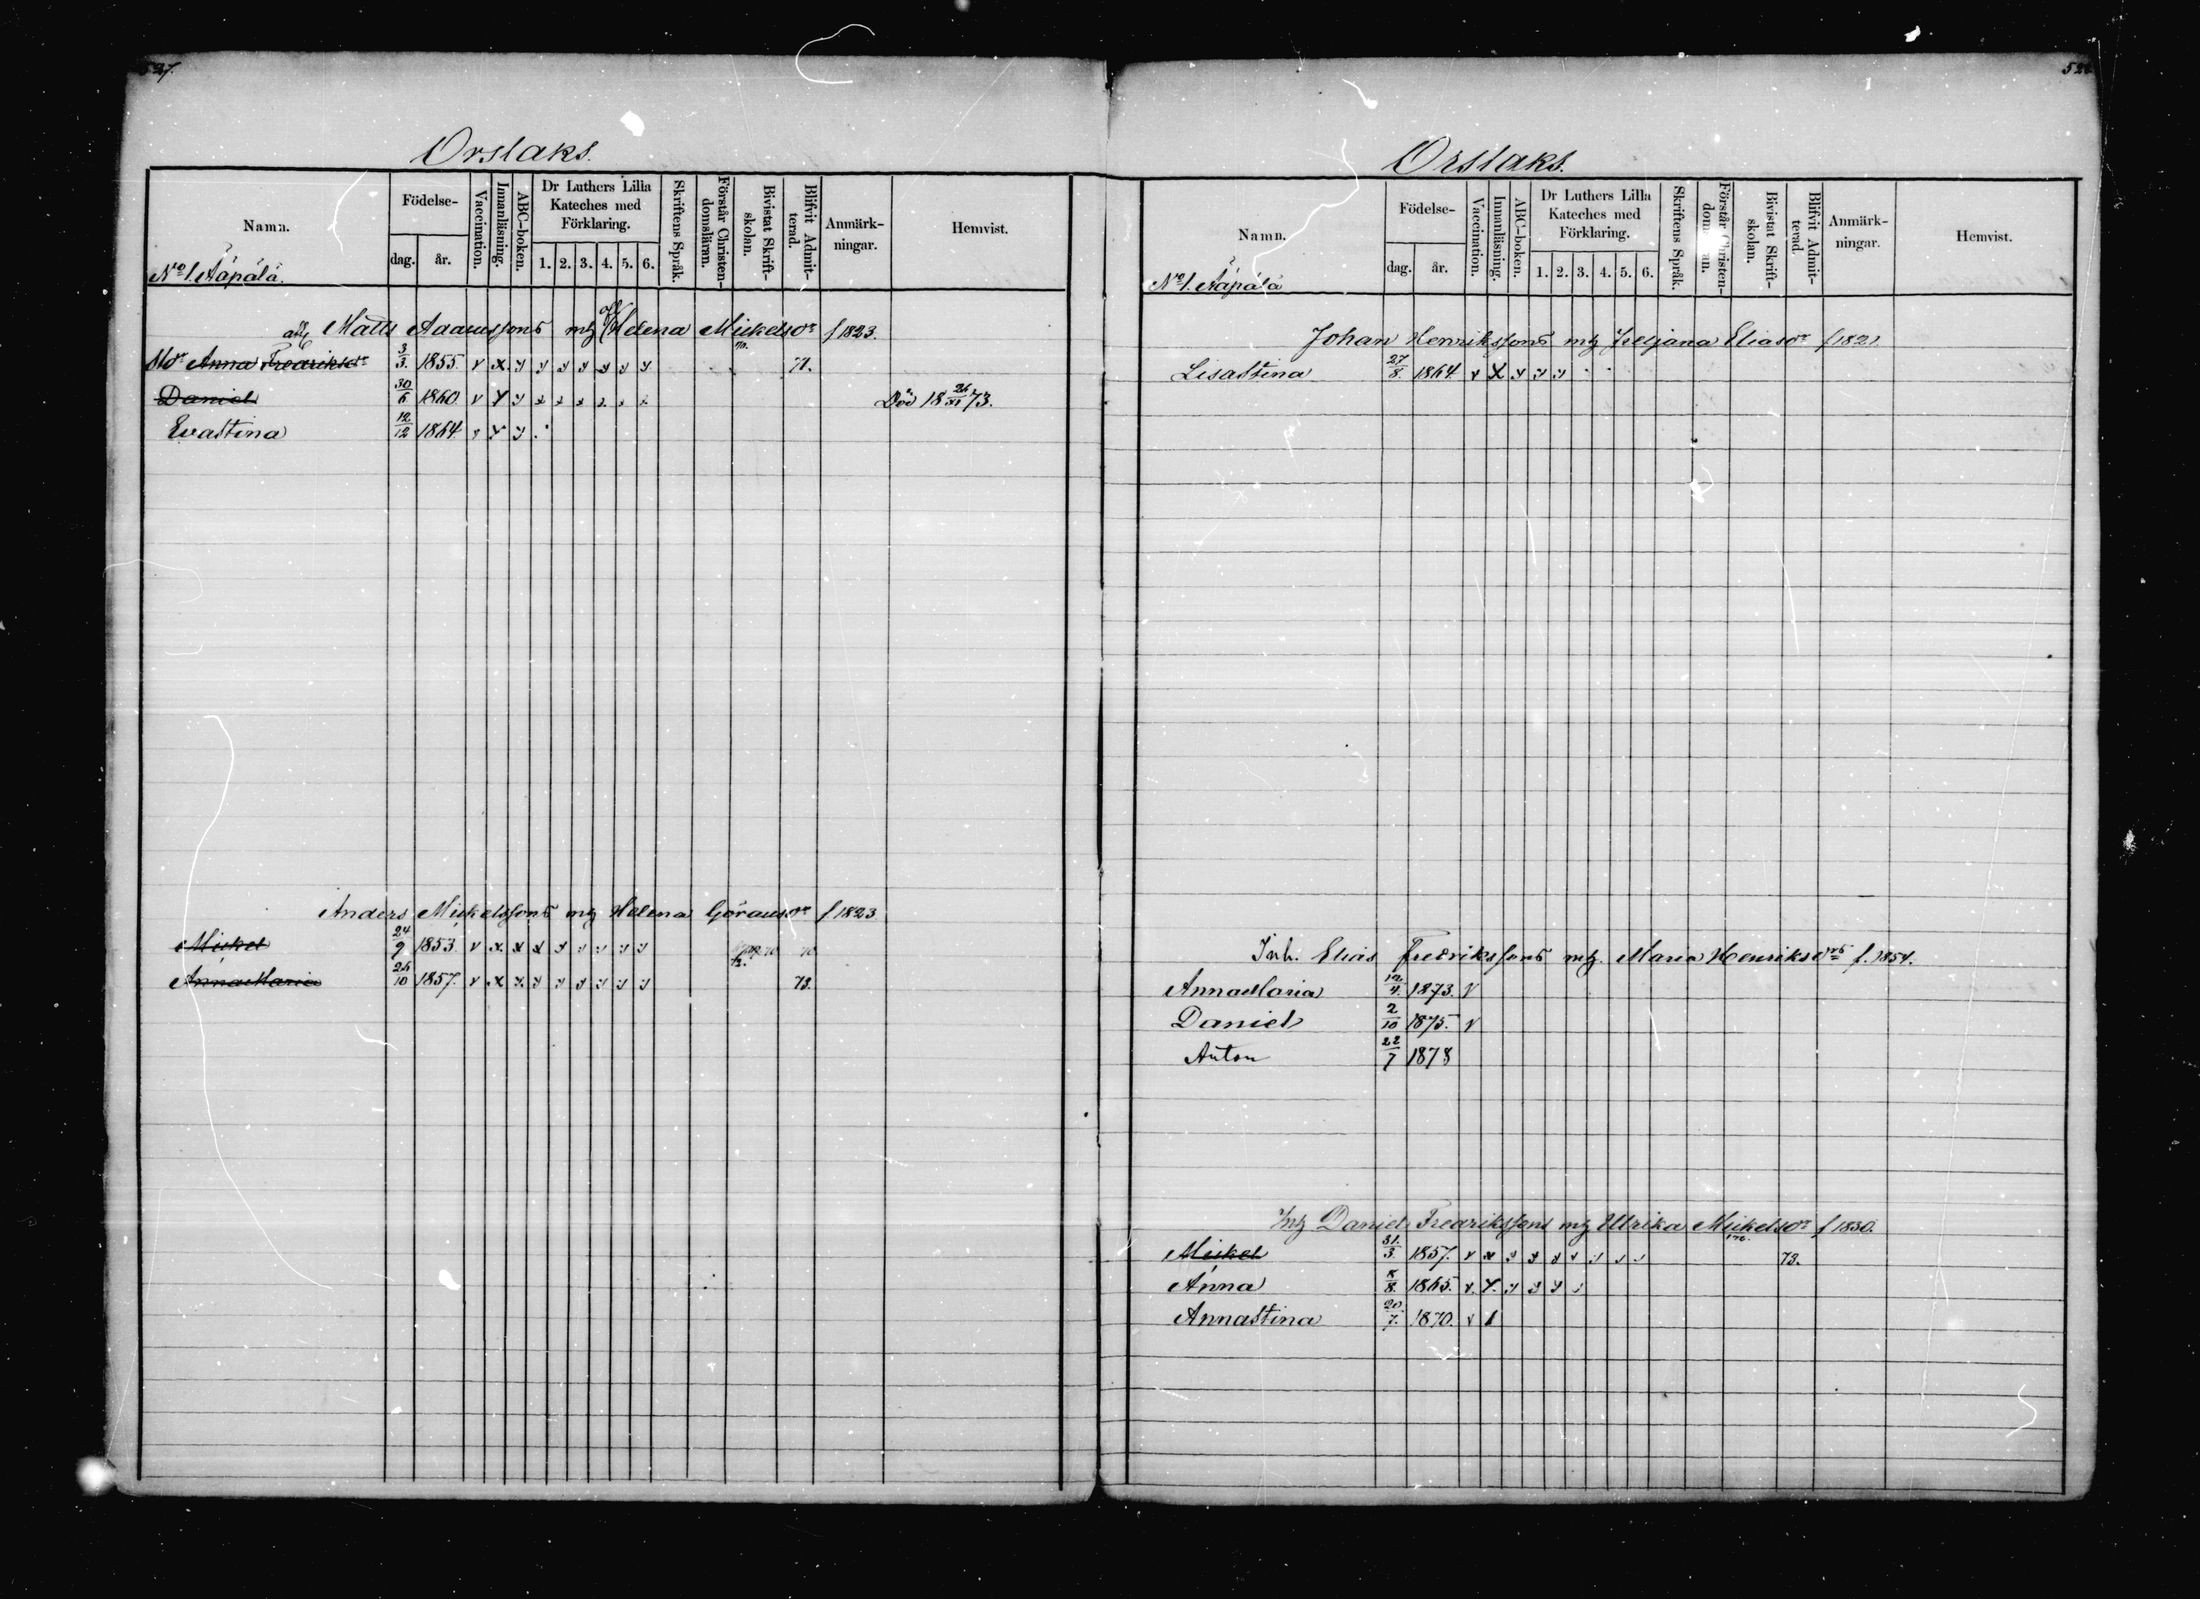 527.
Orslaks.
Namn.
Födelse-
dag.
år.
Vaccination.
Innanläsning.
ABC-boken.
Dr Luthers Lilla Kateches med Förklaring.
1. 2. 3. 4. 5. 6.
Skriftens Språk.
Förstår Christen-domsläran.
Bivistat Skrift-skolan.
Blifvit Admit-terad.
Anmärk-ningar.
Hemvist.
No 1. Äápälä.
Matts Adamssons mg Helena Mickelsdr f 1823.
Anna Fredriksdr 3/3 1855. v x y y y y y y y 71.
Daniel 30/6 1860. v x y x x x x x x Död 18 26/XI 73.
Evastina 12/12 1864. v x y
Anders Mickelssons mg Helena Göransdr f 1823
Mickel 24/9 1853. v x x x y y y y y 70
Anna Maria 26/10 1857. v x x y y y y y y 73.
528
Orslaks.
Namn.
Födelse-
dag.
år.
Vaccination.
Innanläsning.
ABC-boken.
Dr Luthers Lilla Kateches med Förklaring.
1. 2. 3. 4. 5. 6.
Skriftens Språk.
Förstår Christen-dom an.
Bivistat Skrift-skolan.
Blifvit Admit-terad
Anmärk-ningar.
Hemvist.
No 1. Äápälä
Johan Henrikssons mg Juljana Eliasdr f 1821.
Lisastina 27/8. 1864. v x y y y
Inh. Elias Fredrikssons mg. Maria Henriksdr f. 1854.
Anna Maria 12/4. 1873. v
Daniel 2/10 1875. v
Anton 22/7 1878
Daniel Fredrikssons mg Ulrika Mickelsdr f 1830.
Mickel 31/3. 1857. v x y y y y y y y 73.
Anna 8/8. 1865. v x y y y
Annastina 20/7. 1870. v 1